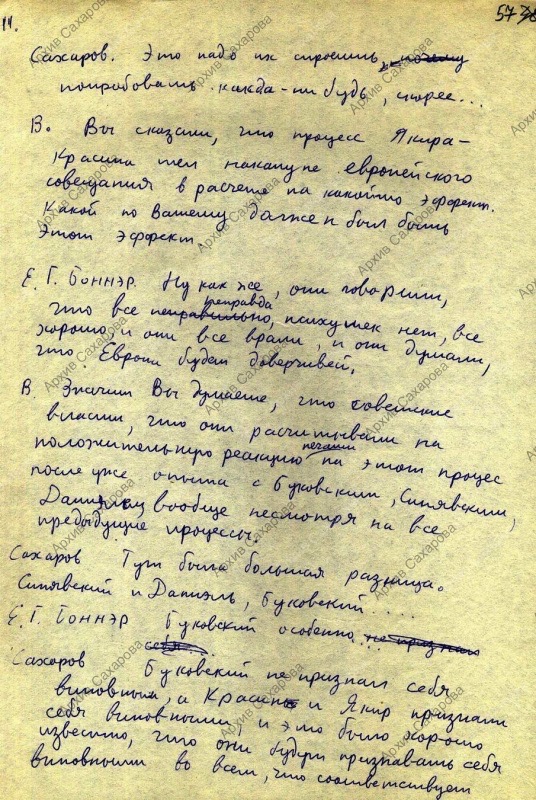 11.
57
Сахаров. Это надо их спросить,
попробовать когда-нибудь, скорее...
В. Вы сказали, что процесс Якира-
Красина шел накануне европейского
совещания в расчете на какойто эффект.
Какой по Вашему должен был быть
этот эффект
Е. Г. Боннэр. Ну как же, они говорили,
что все неправильно, неправда психушек нет, все
хорошо и они все врали, и они думали,
что Европа будет доверчивей.
В. Значит Вы думаете, что советские
власти, что они расчитывали на
положительную реакцию печати на этот процес
после уже опыта с Буковским, Синявским,
Даниэлем вообще несмотря на все
предыдущие процессы.
Сахаров Тут была большая разница.
Синявский и Даниэль, Буковский....
Е. Г. Боннэр Буковский особенно... не признал
себя
Сахаров Буковский не признал себя
виновным, а Красин и Якир признали
себя виновными, и это было хорошо
известно, что они будут признавать себя
виновными во всем, что соответствует
Архив Сахарова